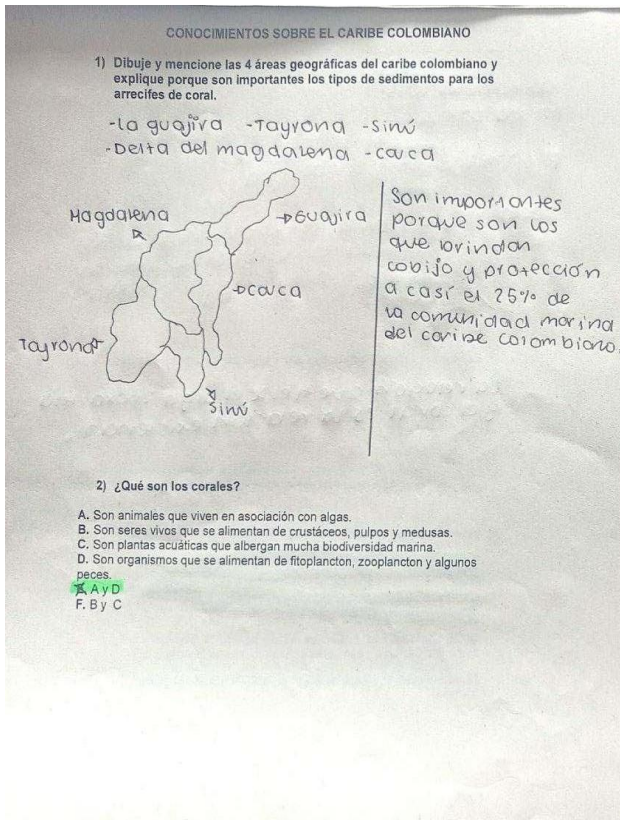 CONOCIMIENTOS SOBRE EL CARIBE COLOMBIANO
1) Dibuje y mencione las 4 áreas geográficas del caribe colombiano y
explique porque son importantes los tipos de sedimentos para los
arrecifes de coral.
-la guajira -Tayrona -Sinú
-Delta del magdalena -cauca
Magdalena
Guajira
cauca
Tayrona
Sinú
Son importantes
porque son los
que brindan
cobijo y protección
a casi el 25% de
la comunidad marina
del caribe colombiano.
2) ¿Qué son los corales?
A. Son animales que viven en asociación con algas.
B. Son seres vivos que se alimentan de crustáceos, pulpos y medusas.
C. Son plantas acuáticas que albergan mucha biodiversidad marina.
D. Son organismos que se alimentan de fitoplancton, zooplancton y algunos
peces.
E. A y D
F. B y C